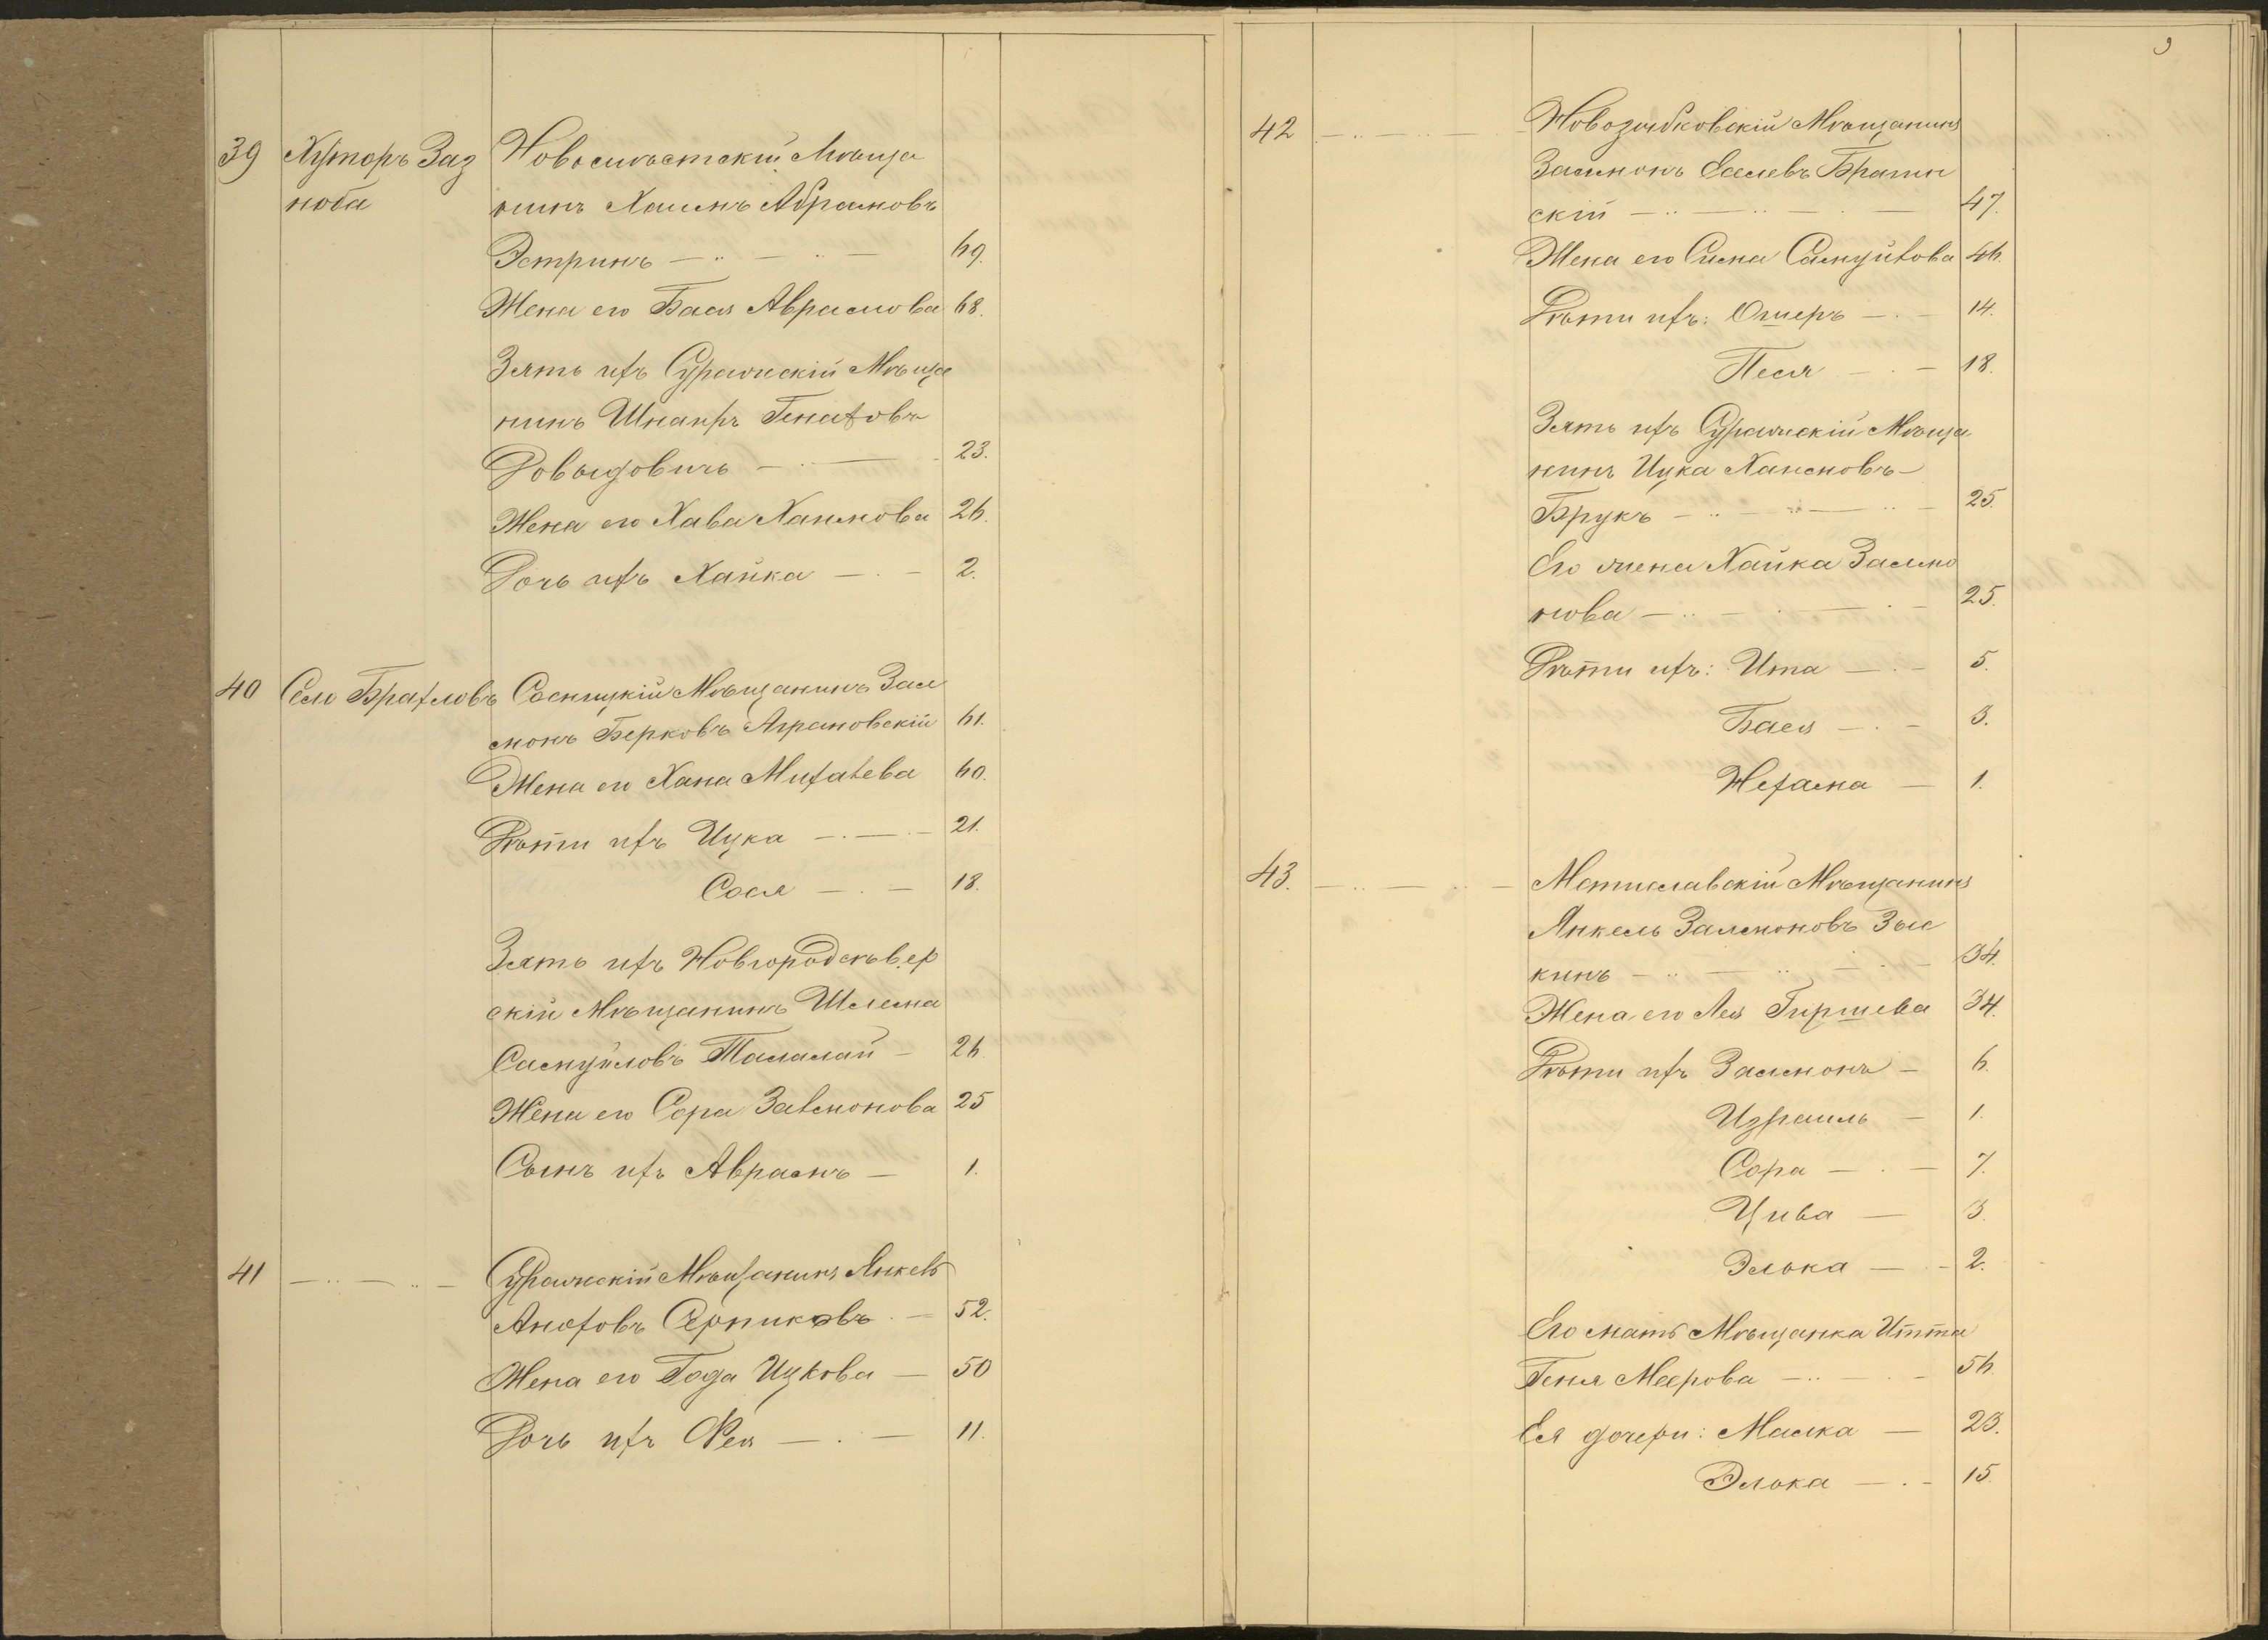 39 Хуторъ Заз Новомѣстскій Мѣща
ноба нинъ Хаимъ Абрамовъ
Эстринъ 69.
Жена его Бася Аврамова 68.
Зять ихъ Суражскій Мѣща
нинъ Шнаиръ Генаховъ
Довыдовичъ 23.
Жена его Хава Хаимова 26.
Дочь ихъ Хайка 2.
40 Село Брахловъ Сосницкій Мѣщанинъ Зал
монъ Берковъ Аграновскій 61.
Жена его Хана Михалева 60.
Дѣти ихъ Ицка 21.
Сося 18.
Зять ихъ Новгородсѣвер
скій Мѣщанинъ Шлема
Самуйловъ Талалай 26.
Жена его Сора Залмонова 25
Сынъ ихъ Аврамъ 1.
41 Суражскій Мѣщанинъ Янкель
Аноховъ Серпиковъ 52.
Жена его Года Ицкова 50
Дочь ихъ Рея 11.
42 Новозыбковскій Мѣщанинъ
Залмонъ Еселевъ Братин
скій 47.
Жена его Сима Самуйлова 46.
Дѣти ихъ: Ошеръ 14.
Песя 18.
Зять ихъ Суражскій Мѣща
нинъ Ицка Хаимовъ
Брукъ 25.
Его жена Хайка Залмо
нова 25.
Дѣти ихъ: Ита 5.
Бася 3.
Нехама 1.
43. Мстиславскій Мѣщанинъ
Янкель Залмоновъ Зыс
кинъ 34.
Жена его Лея Гиршева 34.
Дѣти ихъ Залмонъ 6.
Израиль 1.
Сора 7.
Цива 3.
Элька 2.
Его мать Мѣщанка Итта
Геня Меерова 56.
Ея дочери: Малка 23.
Элька 15.